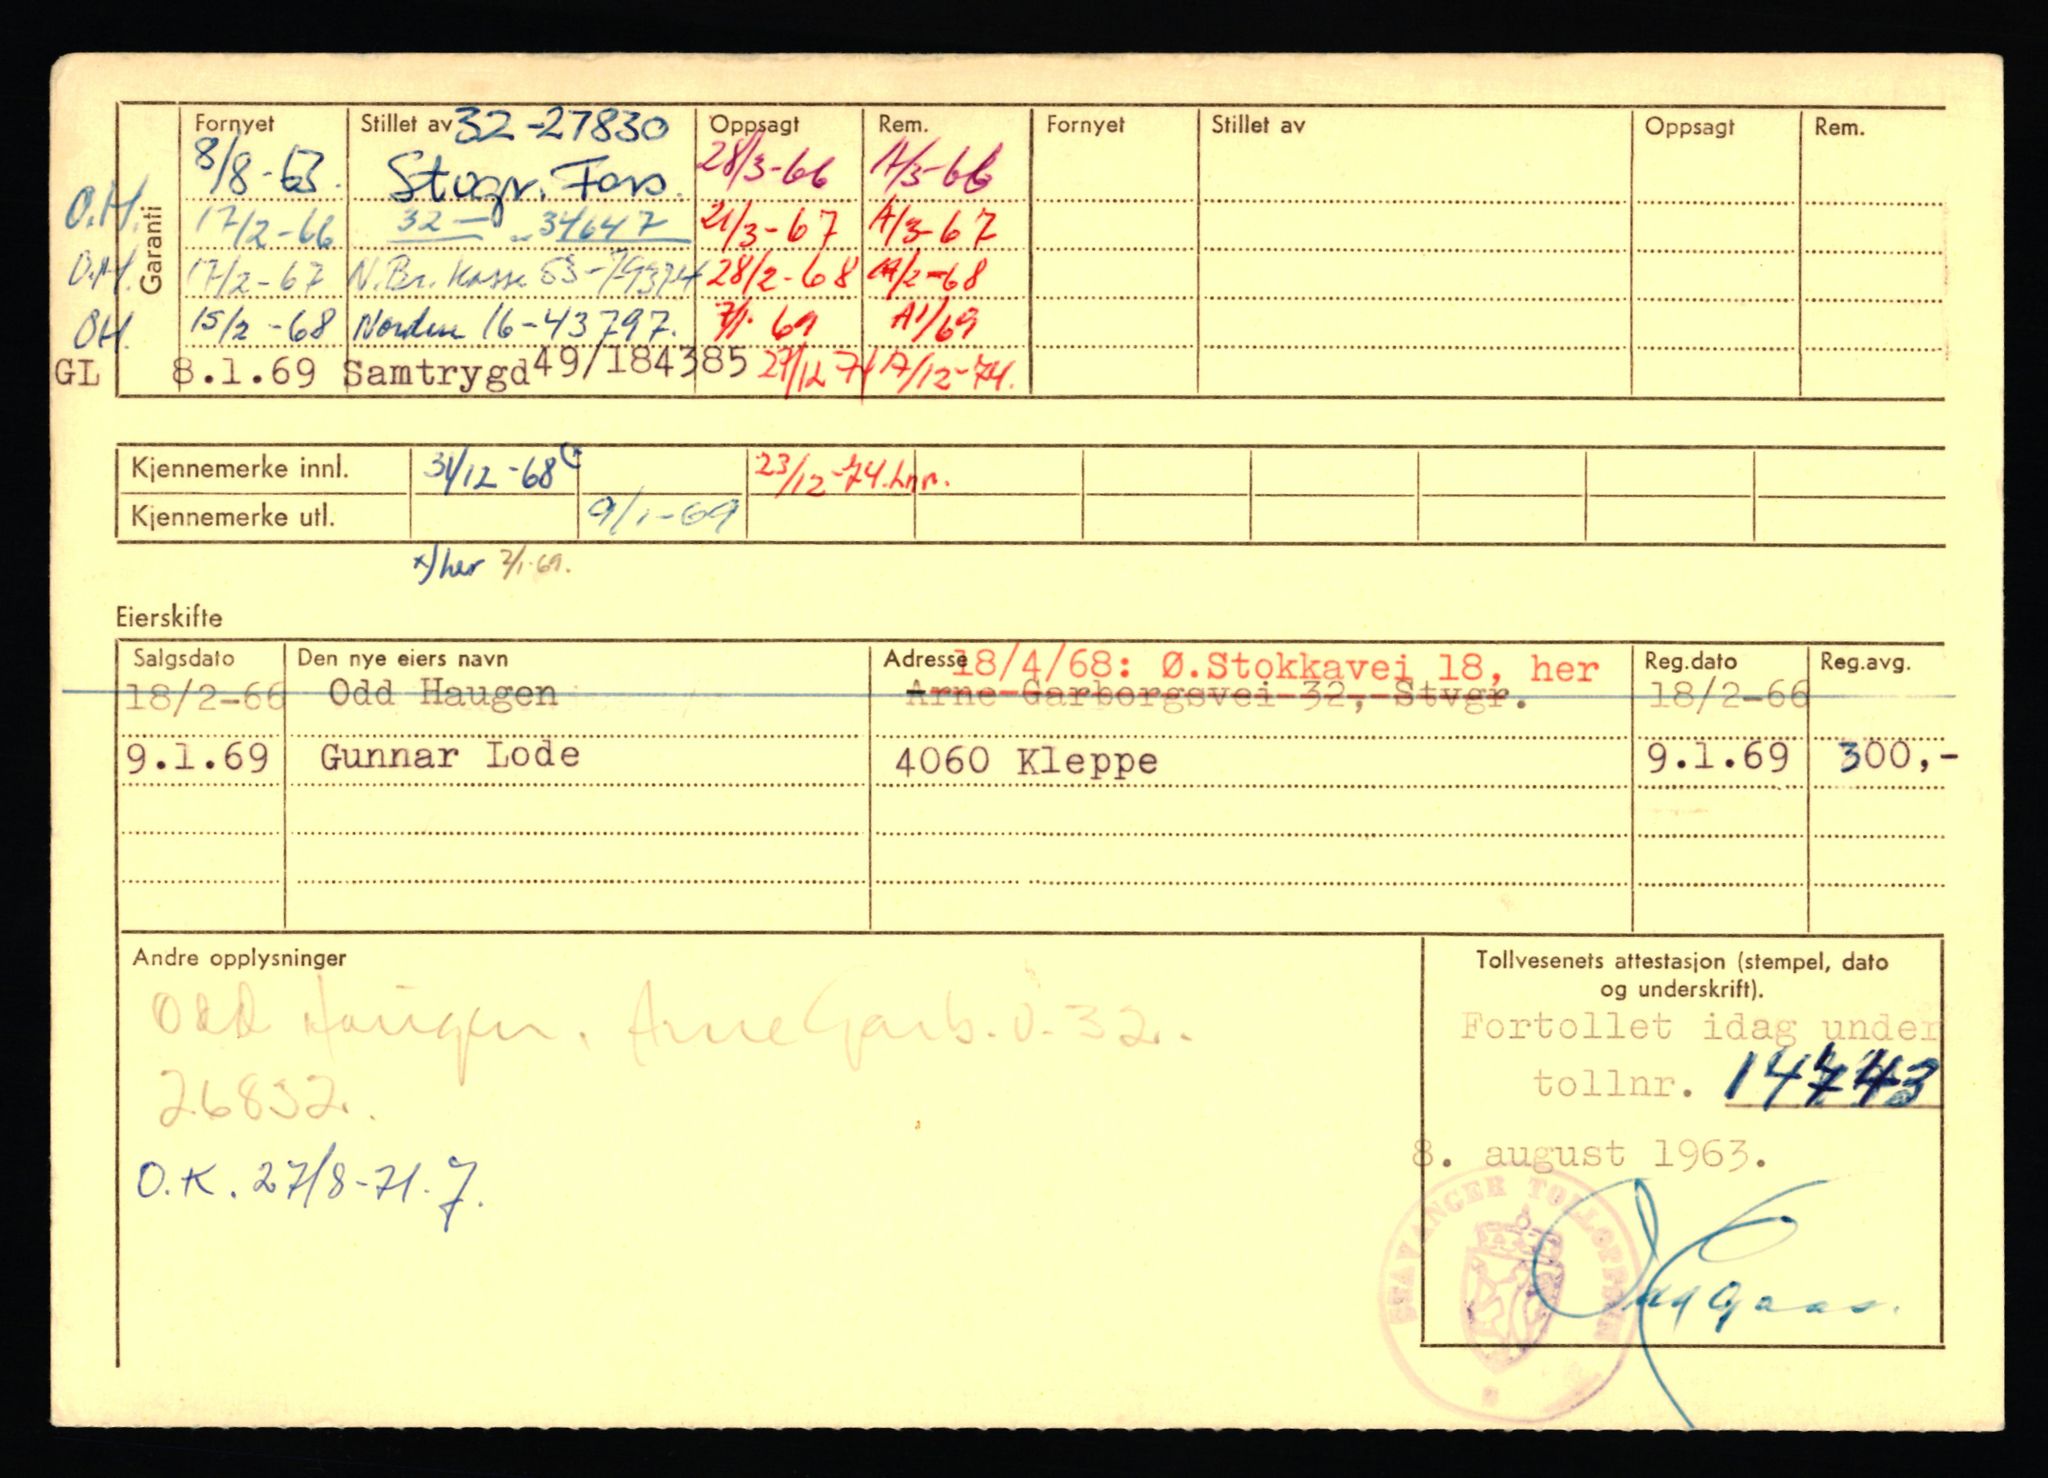 Fornyet Stillet av 32-27830 Oppsagt Rem. Fornyet Stillet av Oppsagt Rem.
Garanti
8/8-63. Stvgr. Fors. 28/3-66 A/3-66
O.H. 17/2-66 32 — „ 34647 21/3-67 A/3-67
O.H. 17/2-67 N.Br.kasse 53-79374 28/2-68 /2-68
OH. 15/2-68 Norden 16-43797. 7/1-69 A1/69
GL 8.1.69 Samtrygd 49/184385 27/12 74 17/12-74.
Kjennemerke innl. 31/12-68 23/12-74.
Kjennemerke utl. 9/1-69
x) her 7/1-69.
Eierskifte
Salgsdato Den nye eiers navn Adresse 18/4/68: Ø.Stokkavei 18, her Reg.dato Reg.avg.
18/2-66 Odd Haugen Arne Garborgsvei 32, Stvgr. 18/2-66
9.1.69 Gunnar Lode 4060 Kleppe 9.1.69 300,-
Andre opplysninger
Odd Haugen, Arne Garb.v. 32.
26832.
O.K. 27/8-71. J.
Tollvesenets attestasjon (stempel, dato
og underskrift).
Fortollet idag under
tollnr. 14743
8. august 1963.
STAVANGER TOLLOPPSYN